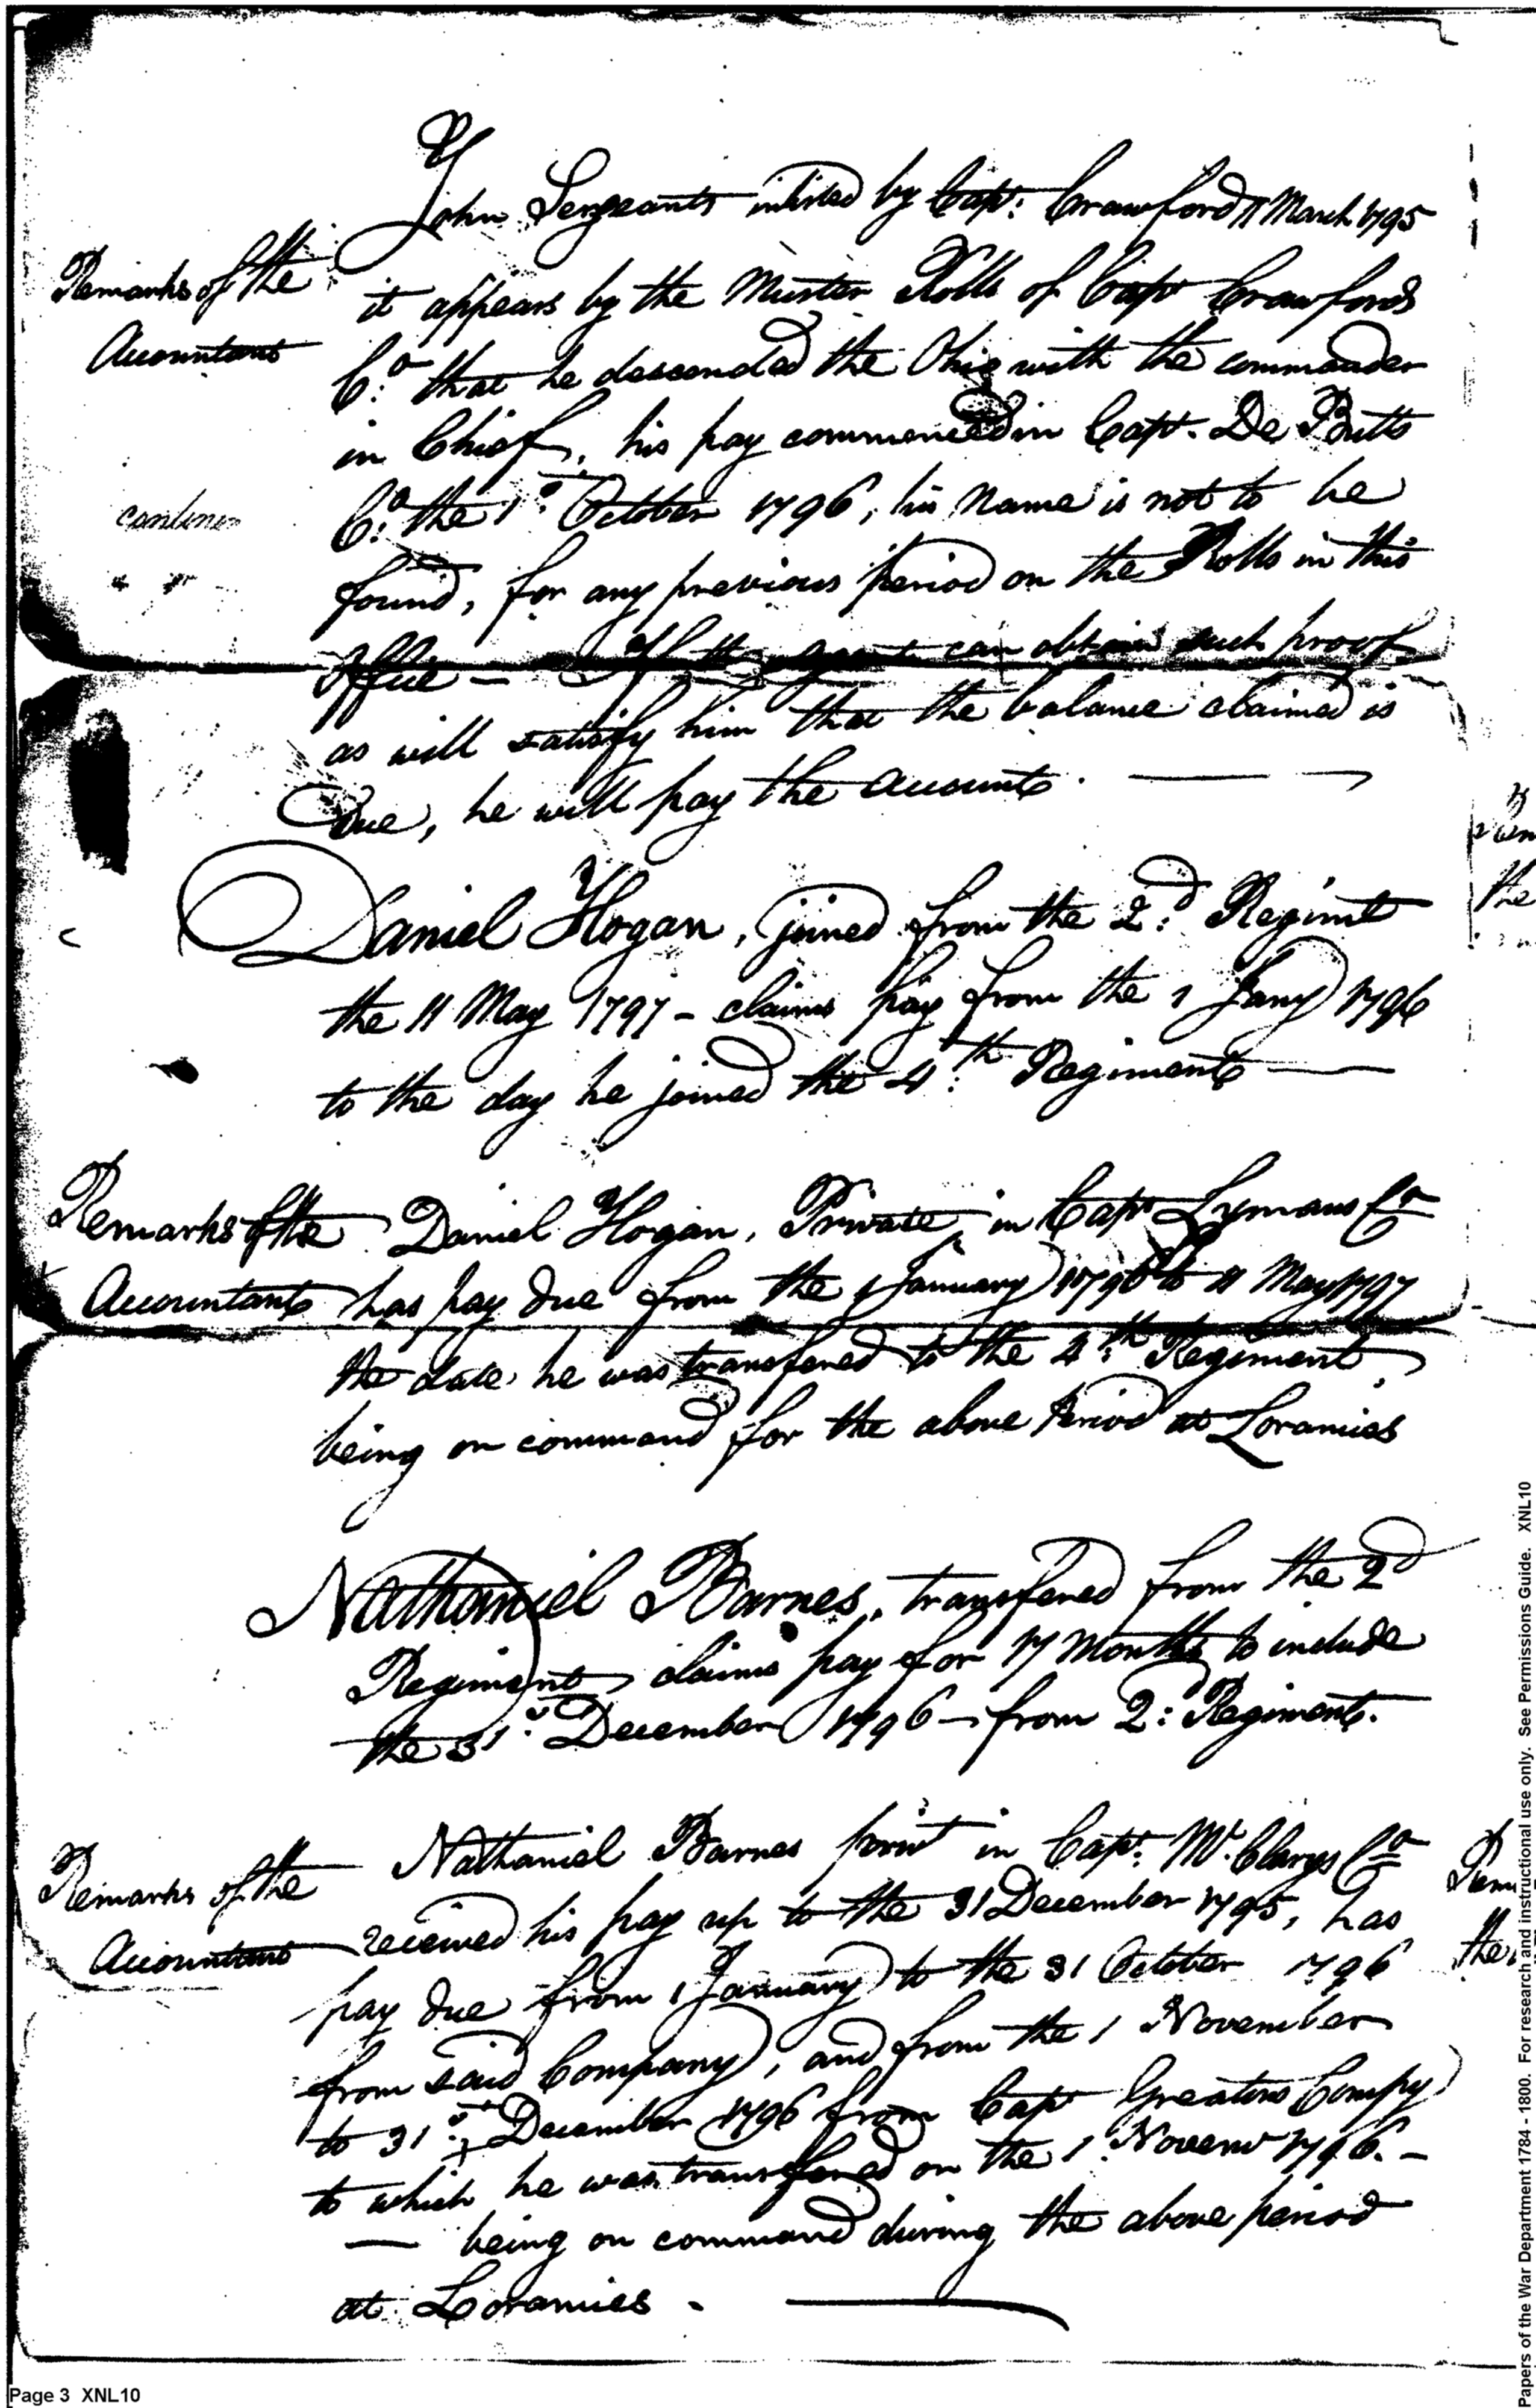 John Sergeants inlisted by Capt. Crawford 11 March 1795
Remarks of the
Accountant
it appears by the Muster Rolls of Capt Crawfords
Co. that he descended the Ohio with the commander
in Chief, his pay commenced in Capt. De Butts
Co. the 1st October 1796, his name is not to be
found, for any previous period on the Rolls in this
Office — If the agent can obtain such proof
as will satisfy him that the balance claimed is
Due, he will pay the account. —
Daniel Hogan, joined from the 2d Regimt
the 11 May 1797 - claims pay from the 1 Jany 1796
to the day he joined the 4th Regiment —
Remarks of the
Accountant
Daniel Hogan, Private, in Capt Lymans Co
has pay due from the 1 January 1796 to 11 May 1797
the date he was transfered to the 4th Regiment
being on command for the above Period at Loramies
Nathaniel Barnes, transfered from the 2d
Regiment claims pay for 17 Months to include
the 31st December 1796 - from 2d Regiment.
Remarks of the
Accountant
Nathaniel Barnes in Capt. Mc Clarys Co
received his pay up to the 31 December 1795, has
pay due from 1 January to the 31 October 1796
from said Company, and from the 1 November
to 31st December 1796 from Capt Greatons Compy
to which he was transfered on the 1 Novemr 1796. -
— being on command during the above period
at Loramies. —
the
the
Page 3 XNL10
Papers of the War Department 1784 - 1800. For research and instructional use only. See Permissions Guide. XNL10